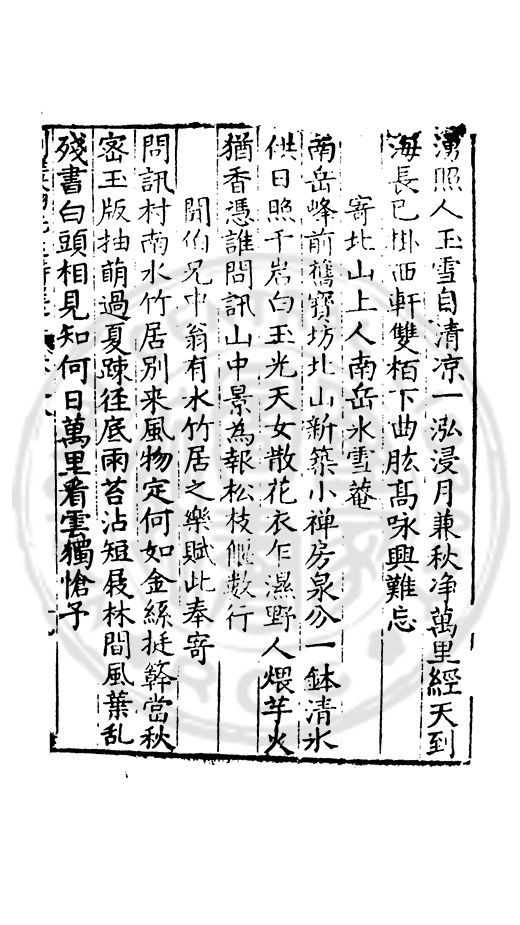 湧照人玉雪自清凉一泓浸月兼秋净萬里經天到
海長已掛西軒雙栢下曲肱髙咏興難忘
寄北山上人南岳氷雪菴
南岳峰前舊寳坊北山新築小禅房泉分一鉢清氷
供日照千岩白玉光天女散花衣乍濕野人煨芋火
猶香憑誰問訊山中景為報松枝偃数行
聞伯兄中翁有水竹居之樂賦此奉寄
問訊村南水竹居別来風物定何如金絲挺簳當秋
宻玉版抽萌過夏踈徑底雨苔沾短屐林間風葉乱
殘書白頭相見知何日萬里看雲獨愴予